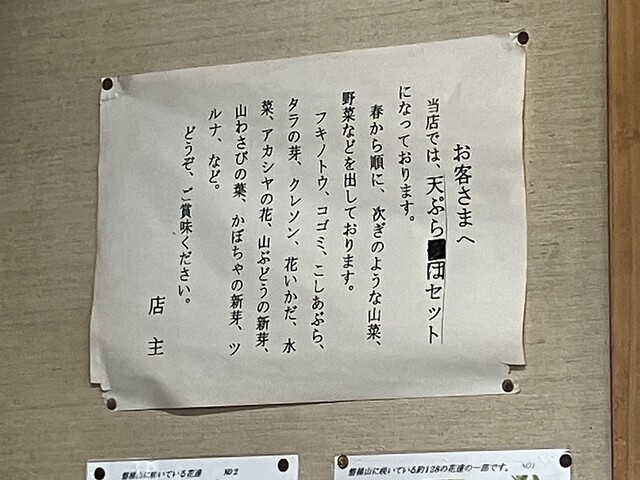 お客さまへ
当店では、天ぷらはセット
になっております。
春から順に、次ぎのような山菜、
野菜などを出しております。
フキノトウ、コゴミ、こしあぶら、
タラの芽、クレソン、花いかだ、水
菜、アカシヤの花、山ぶどうの新芽、
山わさびの葉、かぼちゃの新芽、ツ
ルナ、など。
どうぞ、ご賞味ください。
店主
磐梯山に咲いている花達 NO2
磐梯山に咲いている約128の花達の一部です。 NO1